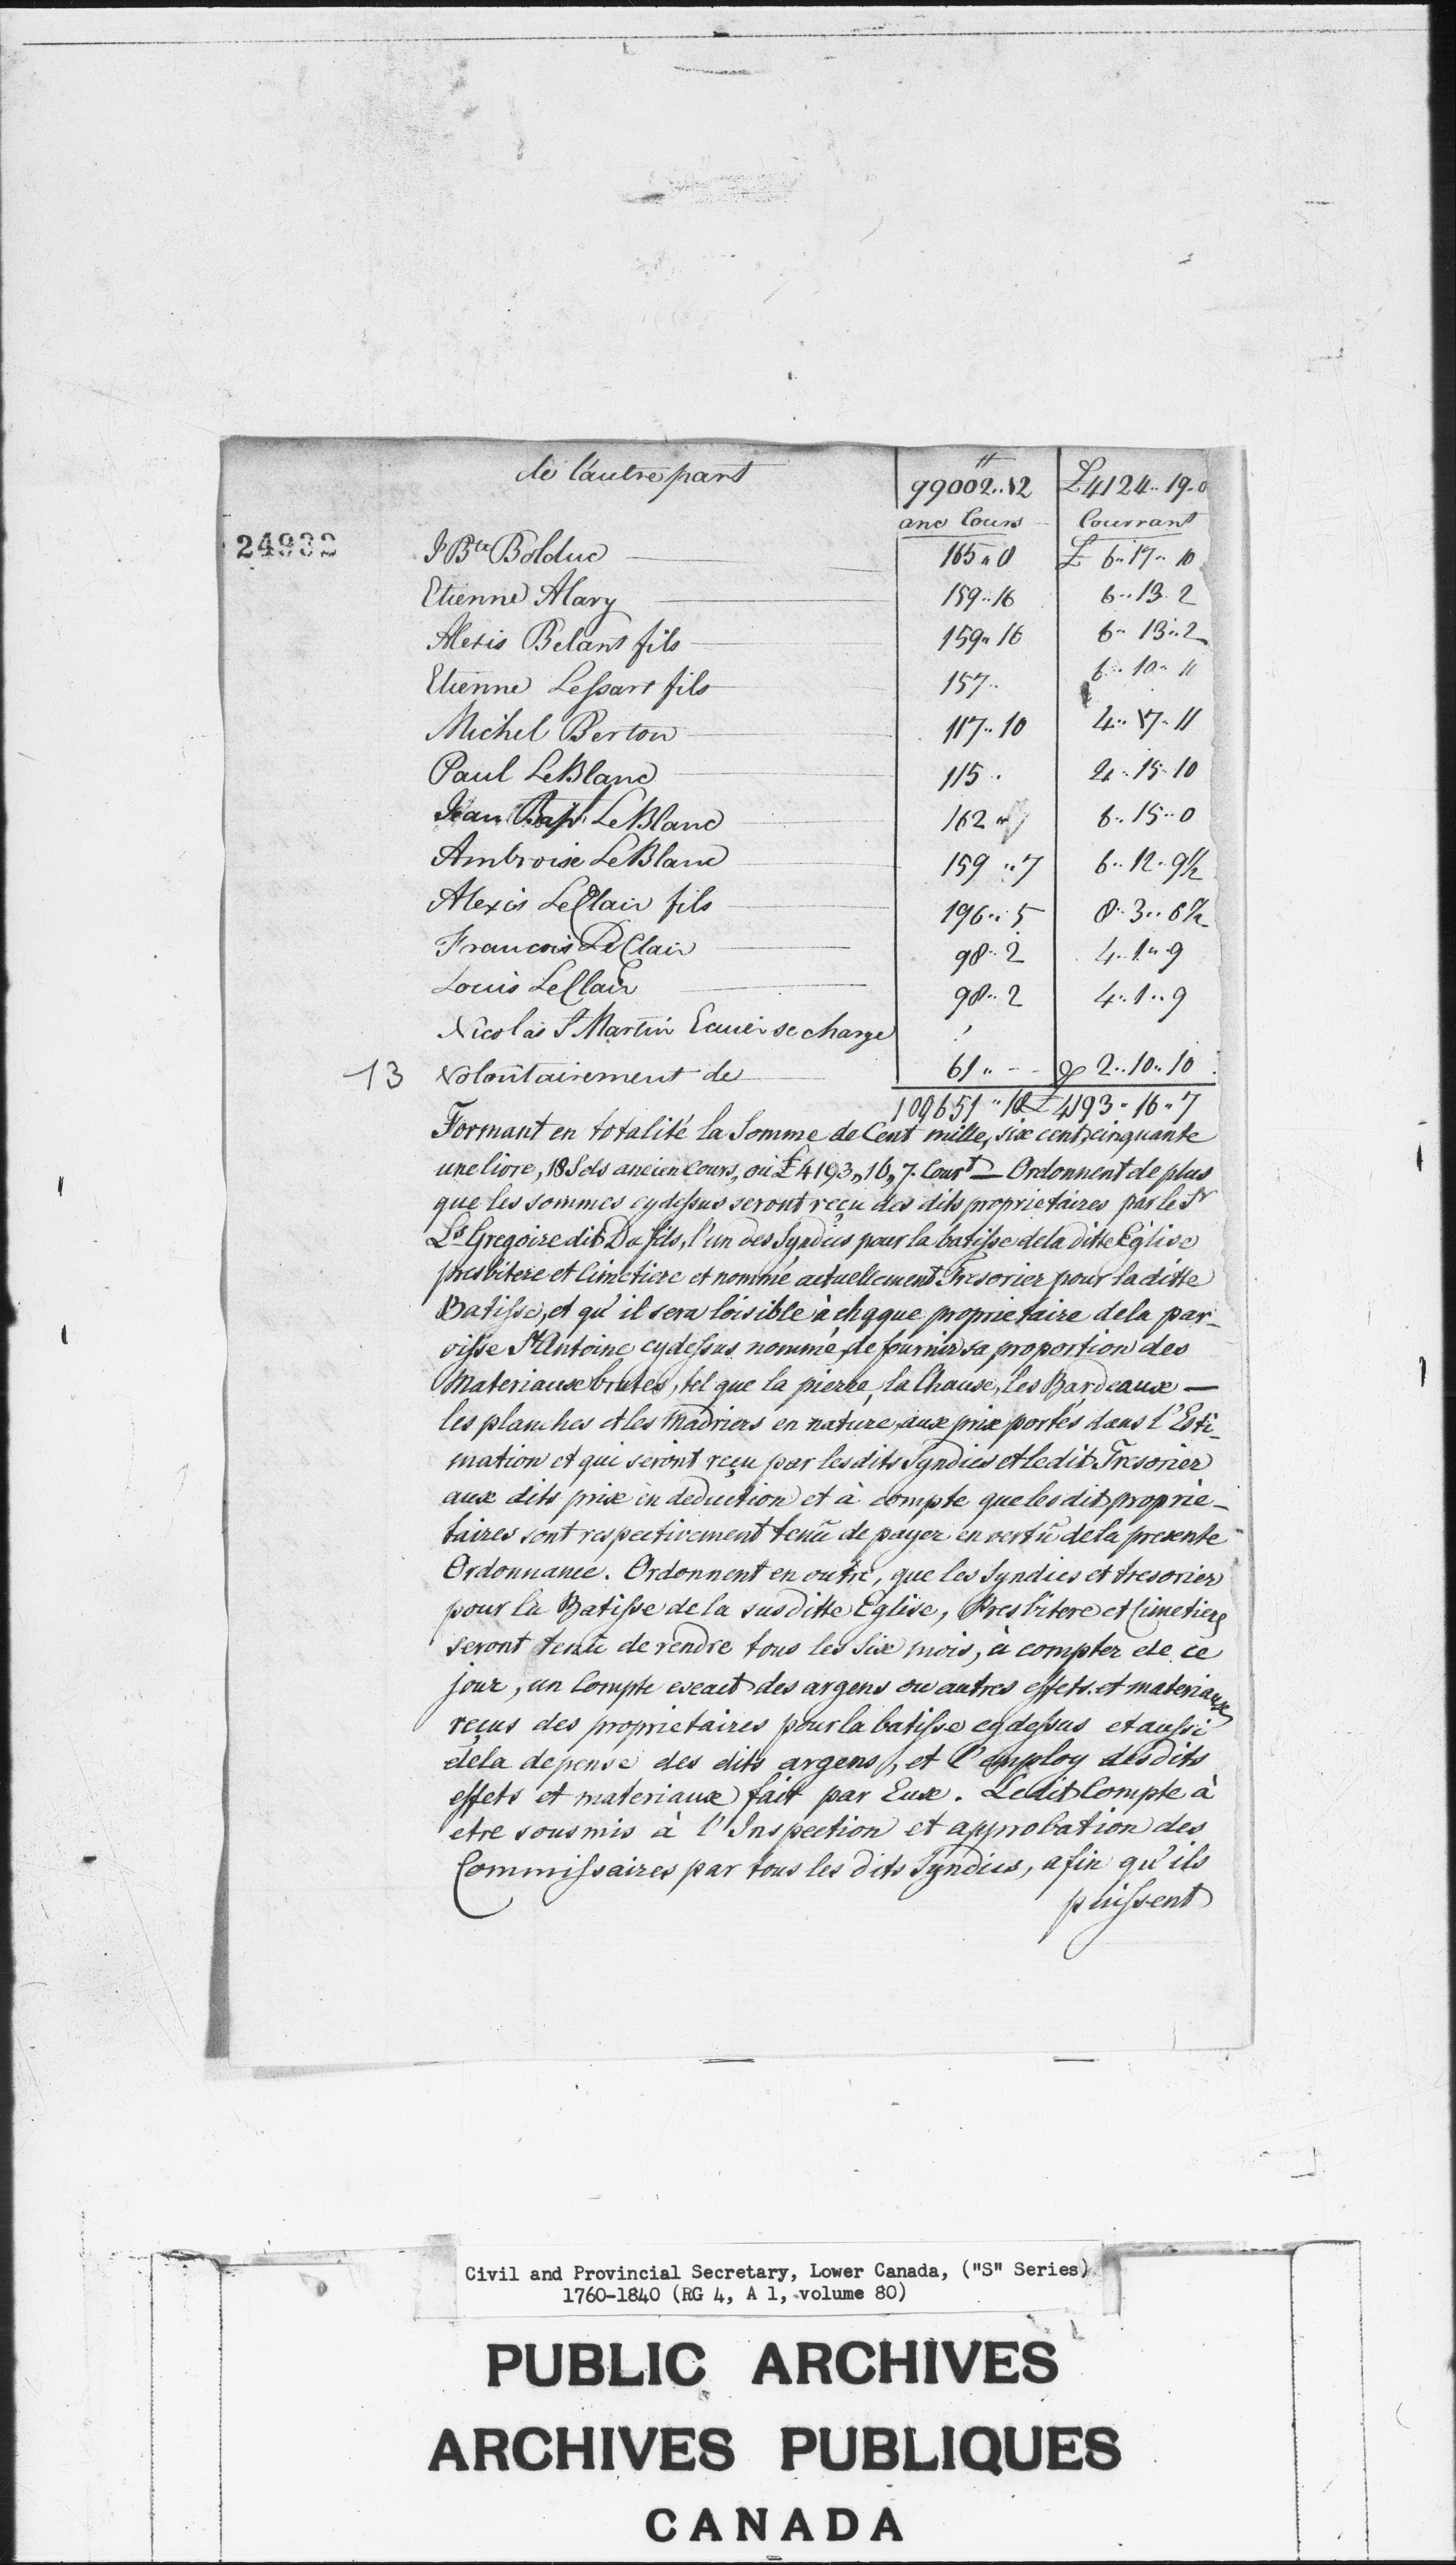 de l'autre part 99002..12 £4124..19..0
anc Cours Courrant
24932 J Bte Bolduc 165"0 £ 6..17..10
Etienne Alary 159..16 6..13..2
Alexis Belant fils 159"16 6..13..2
Etienne Lessart fils 157.. 6..10..11
Michel Berton 117..10 4..17..11
Paul LeBlanc 115.. 4..15..10
Jean Bapt LeBlanc 162 6..15..0
Ambroise LeBlanc 159..7 6..12..9½
Alexis LeClair fils 196..5 8..3..6½
Francois LeClair 98..2 4..1..9
Louis LeClair 98..2 4..1..9
Nicolas St Martin Ecuier se charge
13 Volontairement de 61"-- 2..10..10
100651"18 £4193"16"7
Formant en totalité la Somme de Cent mille, six cent, cinquante
une livre, 18 Sols ancien Cours, ou £4193,,16,,7. Court — Ordonnent de plus
que les sommes cydessus seront reçu des dits proprietaires par le Sr
Ls Gregoire dit fils, l'un des Syndics pour la batisse de la ditte Eglise
presbitere et Cimetiere et nommé actuellement Tresorier pour la ditte
Batisse, et qu'il sera loisible à chaque proprietaire de la par-
oisse St Antoine cydessus nommé, de fournir sa proportion des
Materiaux brutes, tel que la pierre, la Chaux, les Bardeaux —
les planches et les Madriers en nature, aux prix portés dans l'Esti-
mation et qui seront reçu par lesdits Syndics et ledit Tresorier
aux dits prix en deduction et à compte que les dit proprie-
taires sont respectivement tenû de payer en vertû de la presente
Ordonnance. Ordonnent en outre, que les Syndics et tresorier
pour la Batisse de la susditte Eglise, Presbitere et Cimetiere
seront tenû de rendre tous les Six mois, à compter de ce
jour, un Compte exact des argens ou autres effets et materiaux
reçus des proprietaires pour la batisse cydessus et aussi
de la depense des dits argens, et l'employ desdits
effets et materiaux fait par Eux. Ledit Compte à
etre sousmis à l'Inspection et approbation des
Commissaires par tous les dits Syndics, afin qu'ils
puissent
Civil and Provincial Secretary, Lower Canada, ("S" Series)
1760-1840 (RG 4, A 1, volume 80)
PUBLIC ARCHIVES
ARCHIVES PUBLIQUES
CANADA